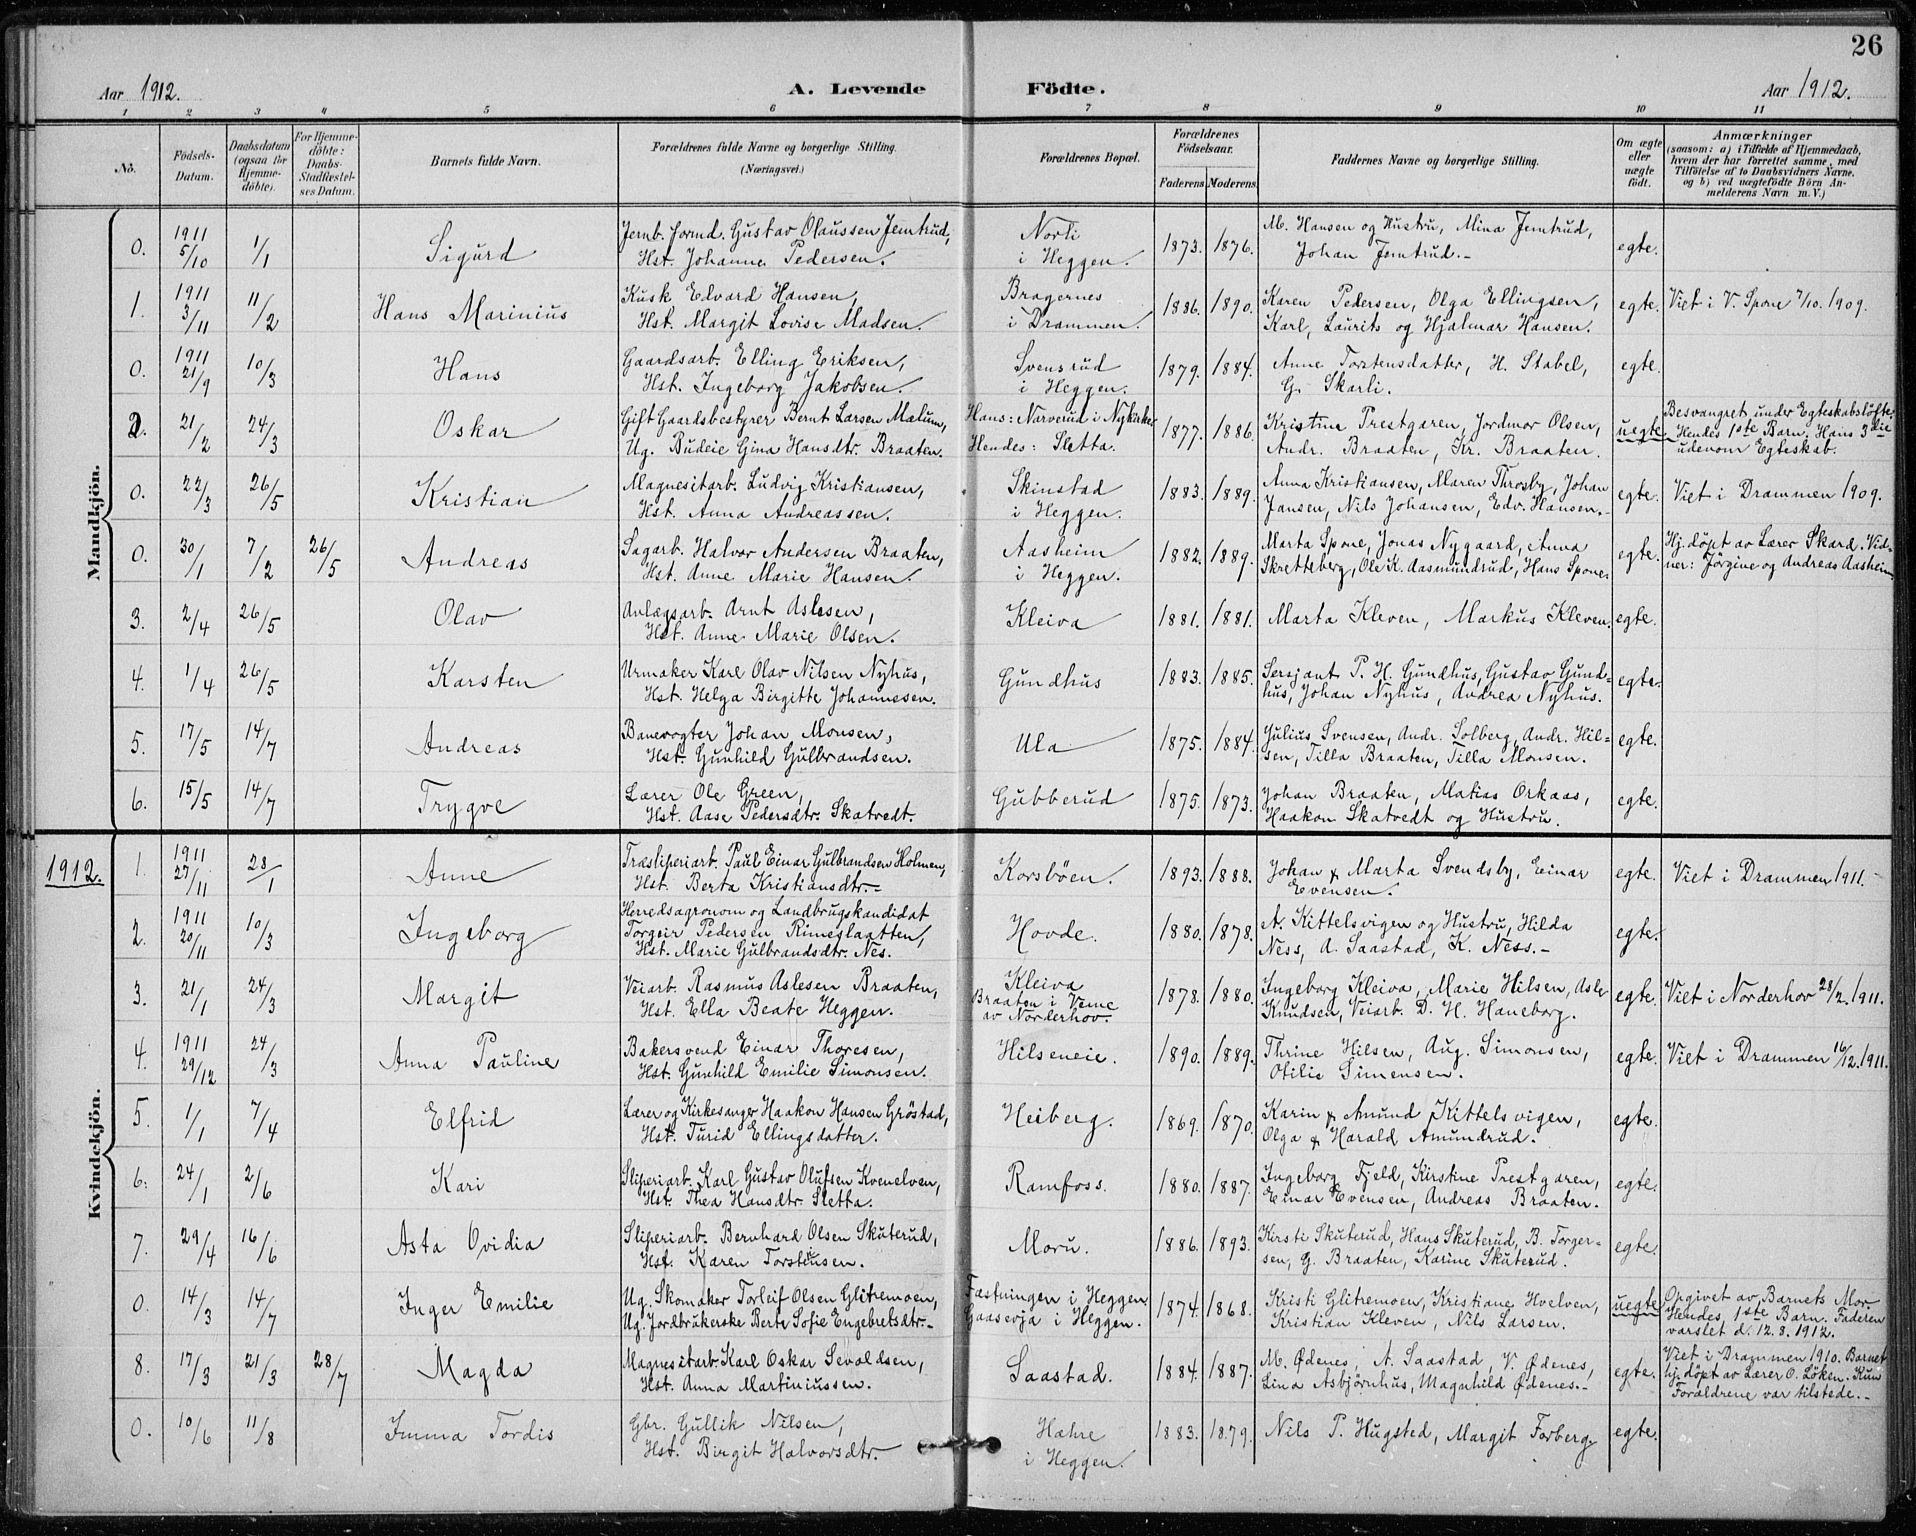 26
Aar 1912. A. Levende Födte. Aar 1912.
1 2 3 4 5 6 7 8 9 10 11
No. Födsels-Datum. Daabsdatum (ogsaa for Hjemmedöbte). For Hjemmedöbte: Daabs-Stadfæstelses Datum. Barnets fulde Navn. Forældrenes fulde Navne og borgerlige Stilling. (Næringsvei.) Forældrenes Bopæl. Forældrenes Födselsaar. Faderens. Moderens. Faddernes Navne og borgerlige Stilling. Om ægte eller uægte födt. Anmærkninger (saasom: a) i Tilfælde af Hjemmedaab, hvem der har forrettet samme, med Tilföielse af to Daabsvidners Navne, og b) ved uægtefödte Börn Anmelderens Navn m. V.)
Mandkjön.
0. 1911 5/10 1/1 Sigurd Jernb. formd. Gustav Olaussen Jemtrud, Norli 1873. 1876. M. Hansen og Hustru, Mina Jemtrud, egte.
Hst. Johanne Pedersen. i Heggen. Johan Jemtrud.-
1. 1911 3/11 11/2 Hans Marinius Kusk Edvard Hansen, Bragernes 1886. 1890. Karen Pedersen, Olga Ellingsen, egte. Viet i V. Spone 7/10. 1909.
Hst. Margit Lovise Madsen. i Drammen. Karl, Laurits og Hjalmar Hansen.
0. 1911 21/9 10/3 Hans Gaardsarb. Elling Eriksen, Svensrud 1879. 1884. Anne Torstensdatter, H. Stabel, egte.
Hst. Ingeborg Jakobsen. i Heggen. G. Skarli.
2. 21/2 24/3 Oskar Gift Gaardsbestyrer Bernt Larsen Malum, Hans: Narverud i Nykirke 1877. 1886. Kristine Prestgaren, Jordmor Olsen, uegte Besvangret under Egteskabsløfte.
Ug. Budeie Gina Hansdtr. Braaten. Hendes: Sletta. Andr. Braaten, Kr. Braaten. Hendes 1ste Barn. Hans 3die
udenom Egteskab.
0. 22/3 26/5 Kristian Magnesitarb. Ludvig Kristiansen, Skinstad 1883. 1889. Anna Kristiansen, Maren Throsby, Johan egte. Viet i Drammen 1909.
Hst. Anna Andreassen. i Heggen. Jansen, Nils Johansen, Edv. Hansen.-
0. 30/1 7/2 26/5 Andreas Sagarb. Halvor Andersen Braaten, Aasheim 1882. 1889. Marta Spone, Jonas Nygaard, Anna egte. Hj. døpt av Lærer Skard. Vid-
Hst. Anne Marie Hansen. i Heggen. Skretteberg, Ole K. Aasmundrud, Hans Spone. ner: Jørgine og Andreas Aasheim
3. 2/4 26/5 Olav Anlægsarb. Arnt Aslesen, Kleiva 1881. 1881. Marta Kleven, Markus Kleven. egte.
Hst. Anne Marie Olsen.
4. 1/4 26/5 Karsten Urmaker Karl Olav Nilsen Nyhus, Gundhus 1883. 1885. Sersjant P. H. Gundhus, Gustav Gund- egte.
Hst. Helga Birgitte Johannesen. hus, Johan Nyhus, Andrea Nyhus.
5. 17/5 14/7 Andreas Banevogter Johan Monsen, Ula 1875. 1884. Julius Svensen, Andr. Solberg, Andr. Hil- egte.
Hst. Gunhild Gulbrandsen. sen, Tilla Braaten, Tilla Monsen.
6. 15/5 14/7 Trygve Lærer Ole Green, Gubberud 1875. 1873. Johan Braaten, Matias Orkaas, egte.
Hst. Aase Pedersdtr. Skatvedt. Haakon Skatvedt og Hustru.
1912.
Kvindekjön.
1. 1911 27/11 28/1 Anne Træsliperiarb. Paul Einar Gulbrandsen Holmen, Korsbøen. 1893. 1888. Johan & Marta Svendsby, Einar egte. Viet i Drammen 1911.
Hst. Berta Kristiansdtr.- Evensen.
2. 1911 20/11 10/3 Ingeborg Herredsagronom og Landbrugskandidat Hovde. 1880. 1878. A. Kittelsvigen og Hustru, Hilda egte.
Torgeir Pedersen Rimeslaatten, Ness, A. Saastad, K. Ness.-
Hst. Marie Gulbrandsdtr. Nes.
3. 21/1 24/3 Margit Veiarb. Rasmus Aslesen Braaten, Kleiva 1878. 1880. Ingeborg Kleiva, Marie Hilsen, Asle egte. Viet i Norderhov 28/2. 1911.
Hst. Ella Beate Heggen. Braaten i Veme Knudsen, Veiarb. D. H. Haneborg.
av Norderhov.
4. 1911 29/12 24/3 Anna Pauline Bakersvend Einar Thoresen, Hilseneie. 1890. 1889. Thrine Hilsen, Aug. Simonsen, egte. Viet i Drammen 16/12. 1911.
Hst. Gunhild Emilie Simonsen. Otilie Simensen.
5. 1/1 7/4 Elfrid Lærer og Kirkesanger Haakon Hansen Grøstad, Heiberg. 1869. 1870. Karin & Amund Kittelsvigen, egte.
Hst. Turid Ellingsdatter. Olga & Harald Amundrud.
6. 24/1 2/6 Kari Sliperiarb. Karl Gustav Olufsen Kvenelven, Ramfoss. 1880. 1887. Ingeborg Fjeld, Kirstine Prestgaren, egte.
Hst. Thea Hansdtr. Sletta. Einar Evensen, Andreas Braaten.
7. 29/4 16/6 Asta Ovidia Sliperiarb. Bernhard Olsen Skuterud, Moru. 1886. 1893. Kirsti Skuterud, Hans Skuterud, B. Torger- egte.
Hst. Karen Torstensen. sen, G. Braaten, Karine Skuterud.
0. 14/3 14/7 Inger Emilie Ug. Skomaker Torleif Olsen Glitremoen, Fastningen i Heggen 1874. 1868. Kristi Glitremoen, Kristiane Hvelven, uegte Opgivet av Barnets Mor.
Ug. Jordbrukerske Berte Sofie Engebretsdtr.- Gaasevja i Heggen. Kristian Kleven, Nils Larsen. Hendes 1ste Barn. Faderen
varslet d. 12. 8. 1912.
8. 17/3 21/3 28/7 Magda Magnesitarb. Karl Oskar Sevaldsen, Saastad. 1884. 1887. M. Ødenes, A. Saastad, V. Ødenes, egte. Viet i Drammen 1910. Barnet
Hst. Anna Martiniussen. Lina Asbjørnhus, Magnhild Ødenes.- hj. døpt av Lærer O. Løken. Kun
Forældrene var tilstede.-
0. 10/6 11/8 Imma Tordis Gbr. Gullik Nilsen, Hæhre 1883. 1879. Nils P. Hugsted, Margit Forberg. egte.
Hst. Birgit Halvorsdtr. i Heggen.